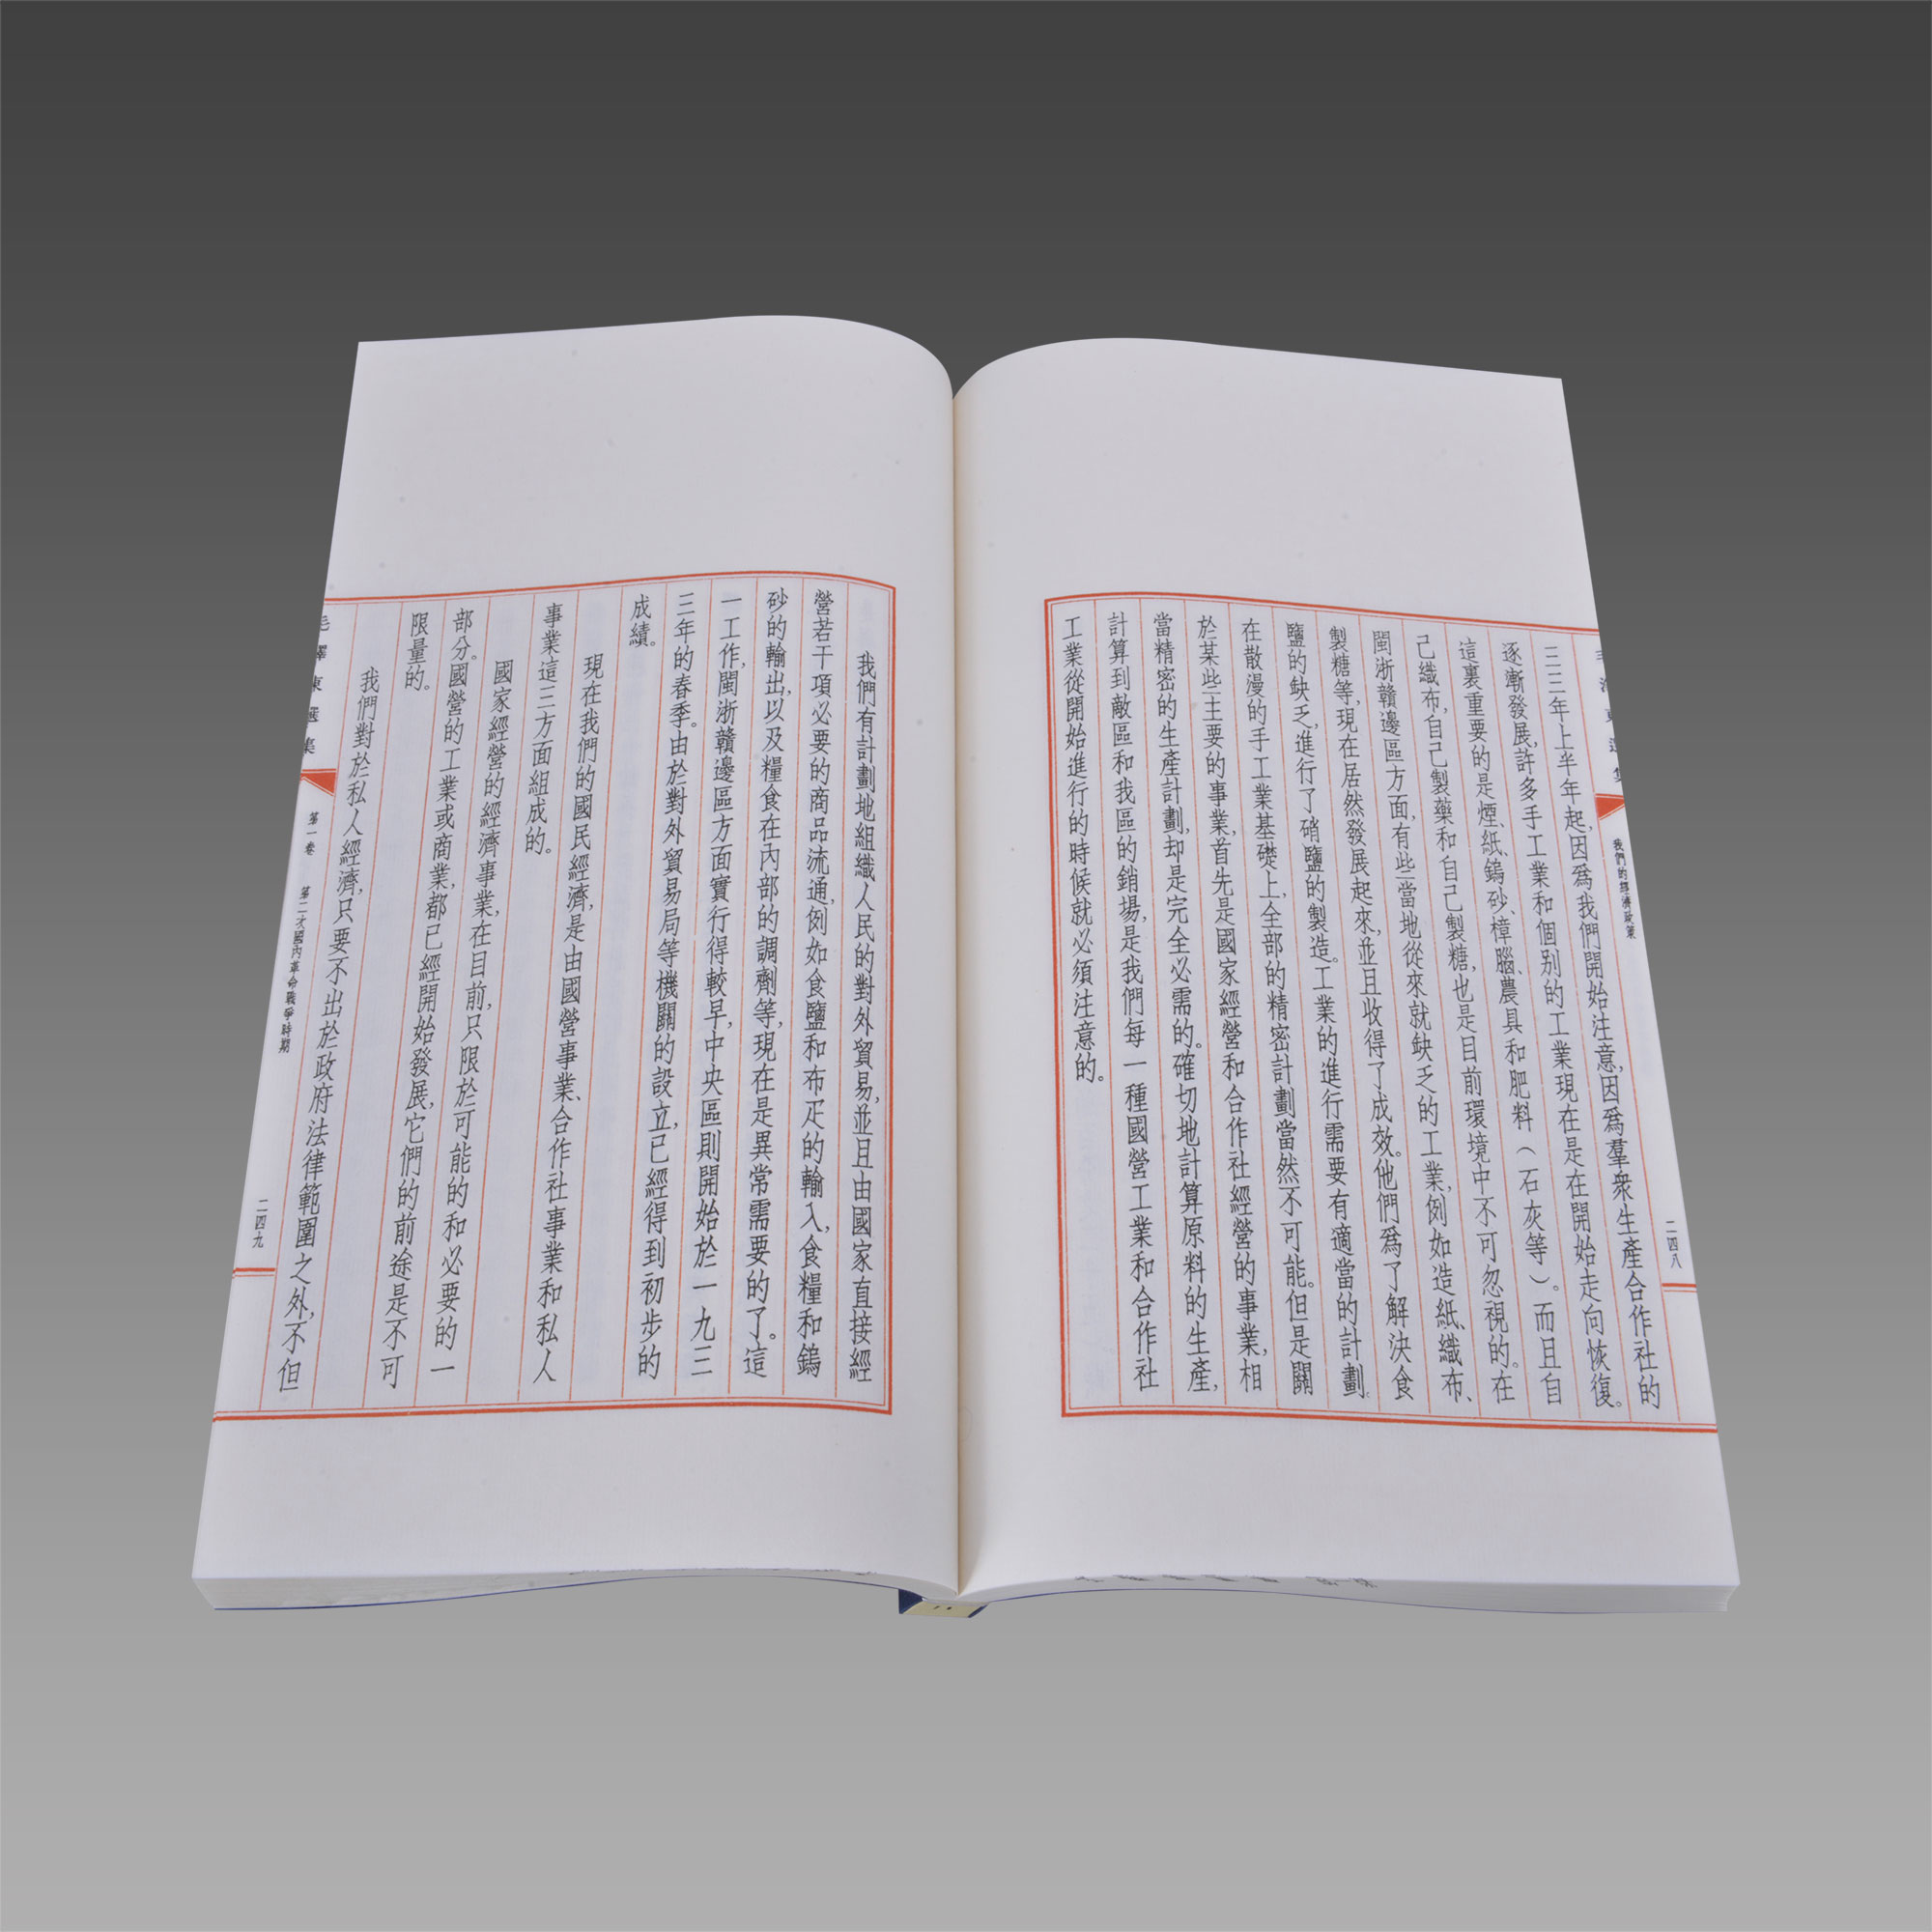 我們的經濟政策
二四八
三三年上半年起,因爲我們開始注意,因爲羣衆生產合作社的
逐漸發展,許多手工業和個別的工業現在是在開始走向恢復。
這裏重要的是煙、紙、鎢砂、樟腦、農具和肥料(石灰等)。而且自
己織布,自己製藥和自己製糖,也是目前環境中不可忽視的。在
閩浙贛邊區方面,有些當地從來就缺乏的工業,例如造紙、織布、
製糖等,現在居然發展起來,並且收得了成效。他們爲了解決食
鹽的缺乏,進行了硝鹽的製造。工業的進行需要有適當的計劃。
在散漫的手工業基礎上,全部的精密計劃當然不可能。但是關
於某些主要的事業,首先是國家經營和合作社經營的事業,相
當精密的生產計劃,却是完全必需的。確切地計算原料的生產,
計算到敵區和我區的銷場,是我們每一種國營工業和合作社
工業從開始進行的時候就必須注意的。
我們有計劃地組織人民的對外貿易,並且由國家直接經
營若干項必要的商品流通,例如食鹽和布疋的輸入,食糧和鎢
砂的輸出,以及糧食在內部的調劑等,現在是異常需要的了。這
一工作,閩浙贛邊區方面實行得較早,中央區則開始於一九三
三年的春季。由於對外貿易局等機關的設立,已經得到初步的
成績。
現在我們的國民經濟,是由國營事業、合作社事業和私人
事業這三方面組成的。
國家經營的經濟事業,在目前,只限於可能的和必要的一
部分。國營的工業或商業,都已經開始發展,它們的前途是不可
限量的。
我們對於私人經濟,只要不出於政府法律範圍之外,不但
毛澤東選集
第一卷 第二次國內革命戰爭時期
二四九